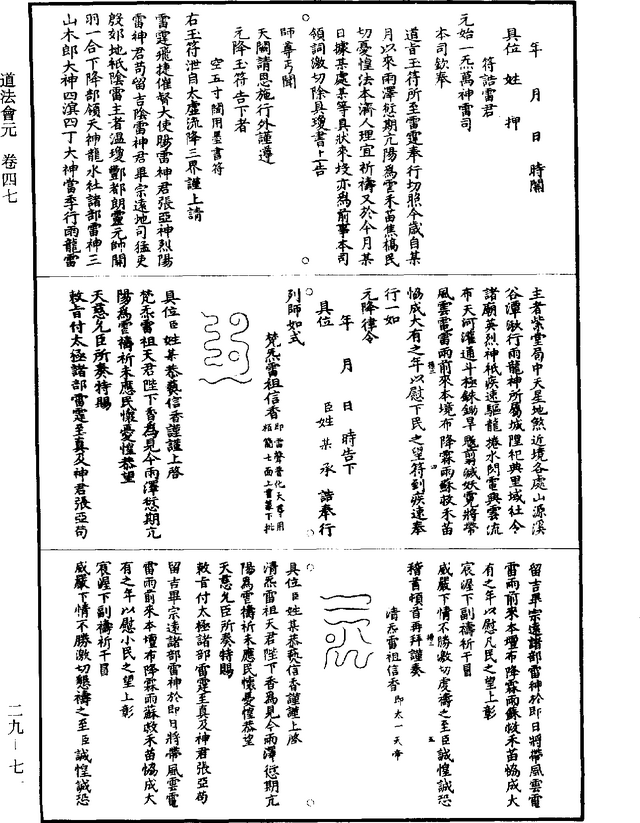 年　月　日　時關
具位　姓　押
符誥雷君
元始一炁萬神雷司
本司欽奉
道旨玉符所至雷霆奉行切照今歲自某
月以來雨澤愆期亢陽為虐禾苗焦槁民
切憂惶法本濟人理宜祈禱又於今月某
日據某處某等具狀來投亦為前事本司
領詞激切除具瓊書上告
師尊丐聞
天闕請恩施行外謹遵
元降玉符告下者
空五寸闊用墨書符
右玉符泄自太虛流降三界謹上請
雷霆飛捷催督大使陽雷神君張亞神烈陽
雷神君苟留吉陰雷神君畢宗遠地司猛吏
殷郊地祇陰雷主者溫瓊酆都朗靈元帥關
羽一合下降部領天神龍水社諸部雷神三
山木郎大神四濱四丁大神當季行雨龍雷
主者紫堂局中天星地煞近境各處山源溪
谷潭湫行雨龍神所屬城隍祀典里域社令
諸廟英烈神祇疾速驅龍捲水閃電興雲流
布天河灌通斗極銖鋤旱魃剪馘妖氛將帶
風雲雷電雷雨前來本境布降霖雨蘇救禾苗
恊成大有之年以慰下民之望符到疾速奉
行一如
元降律令
年　月　日　時告下
具位　臣姓　某　承　誥奉行
列師如式
梵炁雷祖信香即雷聲普化天尊用栢簡七面上書篆下批
具位臣姓某恭爇信香謹謹上啓
梵炁雷祖天君陛下香為見今雨澤愆期亢
陽為虐禱祈未應民懷憂惶恭望
天慈允臣所奏特賜
敕旨付太極諸部雷霆至真及神君張亞苟
留吉畢宗遠諸部雷神於即日將帶風雲雷電
雷雨前來本壇布降霖雨蘇救禾苗恊成大
有之年以慰凡民之望上彰
宸渥下副禱祈干冒
威嚴下情不勝激切虔禱之至臣誠惶誠恐
稽首頓首再拜謹奏
清炁雷祖信香即太一天帝
具位臣姓某恭爇信香謹謹上啓
清炁雷祖天君陛下香為見今雨澤愆期亢
陽為虐禱祈未應民懷憂惶恭望
天慈允臣所奏特賜
敕旨付太極諸部雷霆至真及神君張亞苟
留吉畢宗遠諸部雷神於即日將帶風雲雷電
雷雨前來本壇布降霖雨蘇救禾苗恊成大
有之年以慰小民之望上彰
宸渥下副禱祈干冒
威嚴下情不勝激切懇禱之至臣誠惶誠恐
道法會元　卷四七
二九—七一